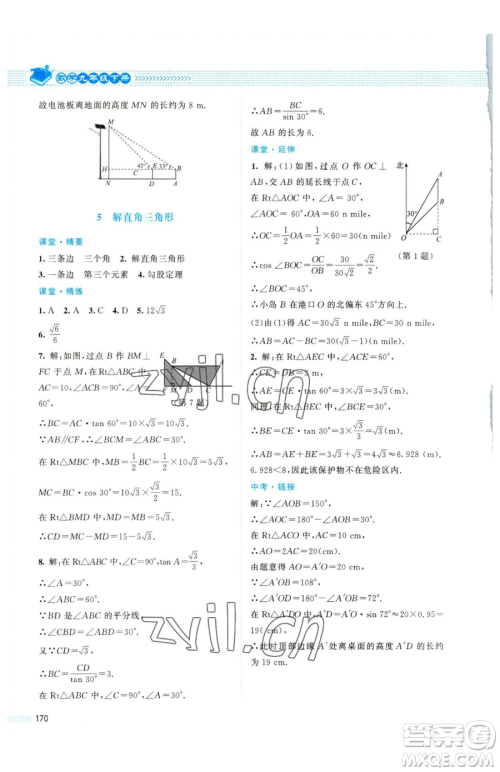 数学九年级下册
故电池板离地面的高度 MN 的长约为 8 m.
M
H
E
33°
N
C
D
A
5 解直角三角形
课堂·精要
1. 三条边 三个角 2. 直角三角形
3. 一条边 第三个元素 4. 勾股定理
课堂·精练
1. A 2. A 3. C 4. D 5. 12√3
6. √6/6
7. 解:如图,过点 B 作 BM⊥
FC 于点 M,在 Rt△ACB 中,
AC=10,∠A=60°,∠ACB=
90°.
(第 7 题)
∴BC=AC·tan 60°=10×√3=10√3.
∵AB∥CF,∴∠BCM=∠ABC=30°.
在 Rt△BCM 中,BM=1/2 BC=1/2×10√3=5√3,
MC=BC·cos 30°=10√3×√3/2=15.
在 Rt△BMD 中,∠MDB=45°,
∴MD=BM=5√3.
∴CD=MC-MD=15-5√3.
8. 解:在 Rt△ABC 中,∠C=90°,tan A=√3/3,
∴∠A=30°.
∴∠ABC=60°.
∵BD 是∠ABC 的平分线,
∴∠CBD=∠ABD=30°.
又∵CD=√3,
∴BC=CD/tan 30°=3.
在 Rt△ABC 中,∠C=90°,∠A=30°,
∴AB=BC/sin 30°=6.
故 AB 的长为 6.
课堂·延伸
1. 解:(1)如图,过点 O 作 OC⊥
AB,交 AB 的延长线于点 C,
由题意得∠AOC=60°,OA=60 n mile,
∴OC=1/2 OA=1/2×60=30(n mile).
∴cos∠BOC=OC/OB=30/30√2=√2/2.
∴∠BOC=45°.
∴小岛 B 在港口 O 的北偏东 45°方向.
北
A
B
30°
O
C
(第 1 题)
2. 解:在 Rt△AEC 中,∠AEC=60°,
∴AE=CE·tan 60°=3×√3=3√3(m).
同理:在 Rt△BEC 中,
∴AB=AE+BE=3√3+√3=4√3≈6.928(m).
6.928<8,因此该保护物不在危险区内.
中考·链接
解:∵∠AOB=150°,
∴∠AOC=180°-∠AOB=30°.
在 Rt△ACO 中,AC=10 cm,
∴AO=2AC=20 cm.
由题意得 A′O=AO=20 cm.
∵∠A′OB=108°,
∴∠A′OD=180°-∠A′OB=72°.
在 Rt△A′DO 中,A′D=A′O·sin 72°≈20×0.95=
19(cm).
此时顶部边缘 A′处离桌面的高度 A′D 的长约
为 19 cm.
170
zyjl.cn
zyjl.cn
答案圈
MXQE.COM